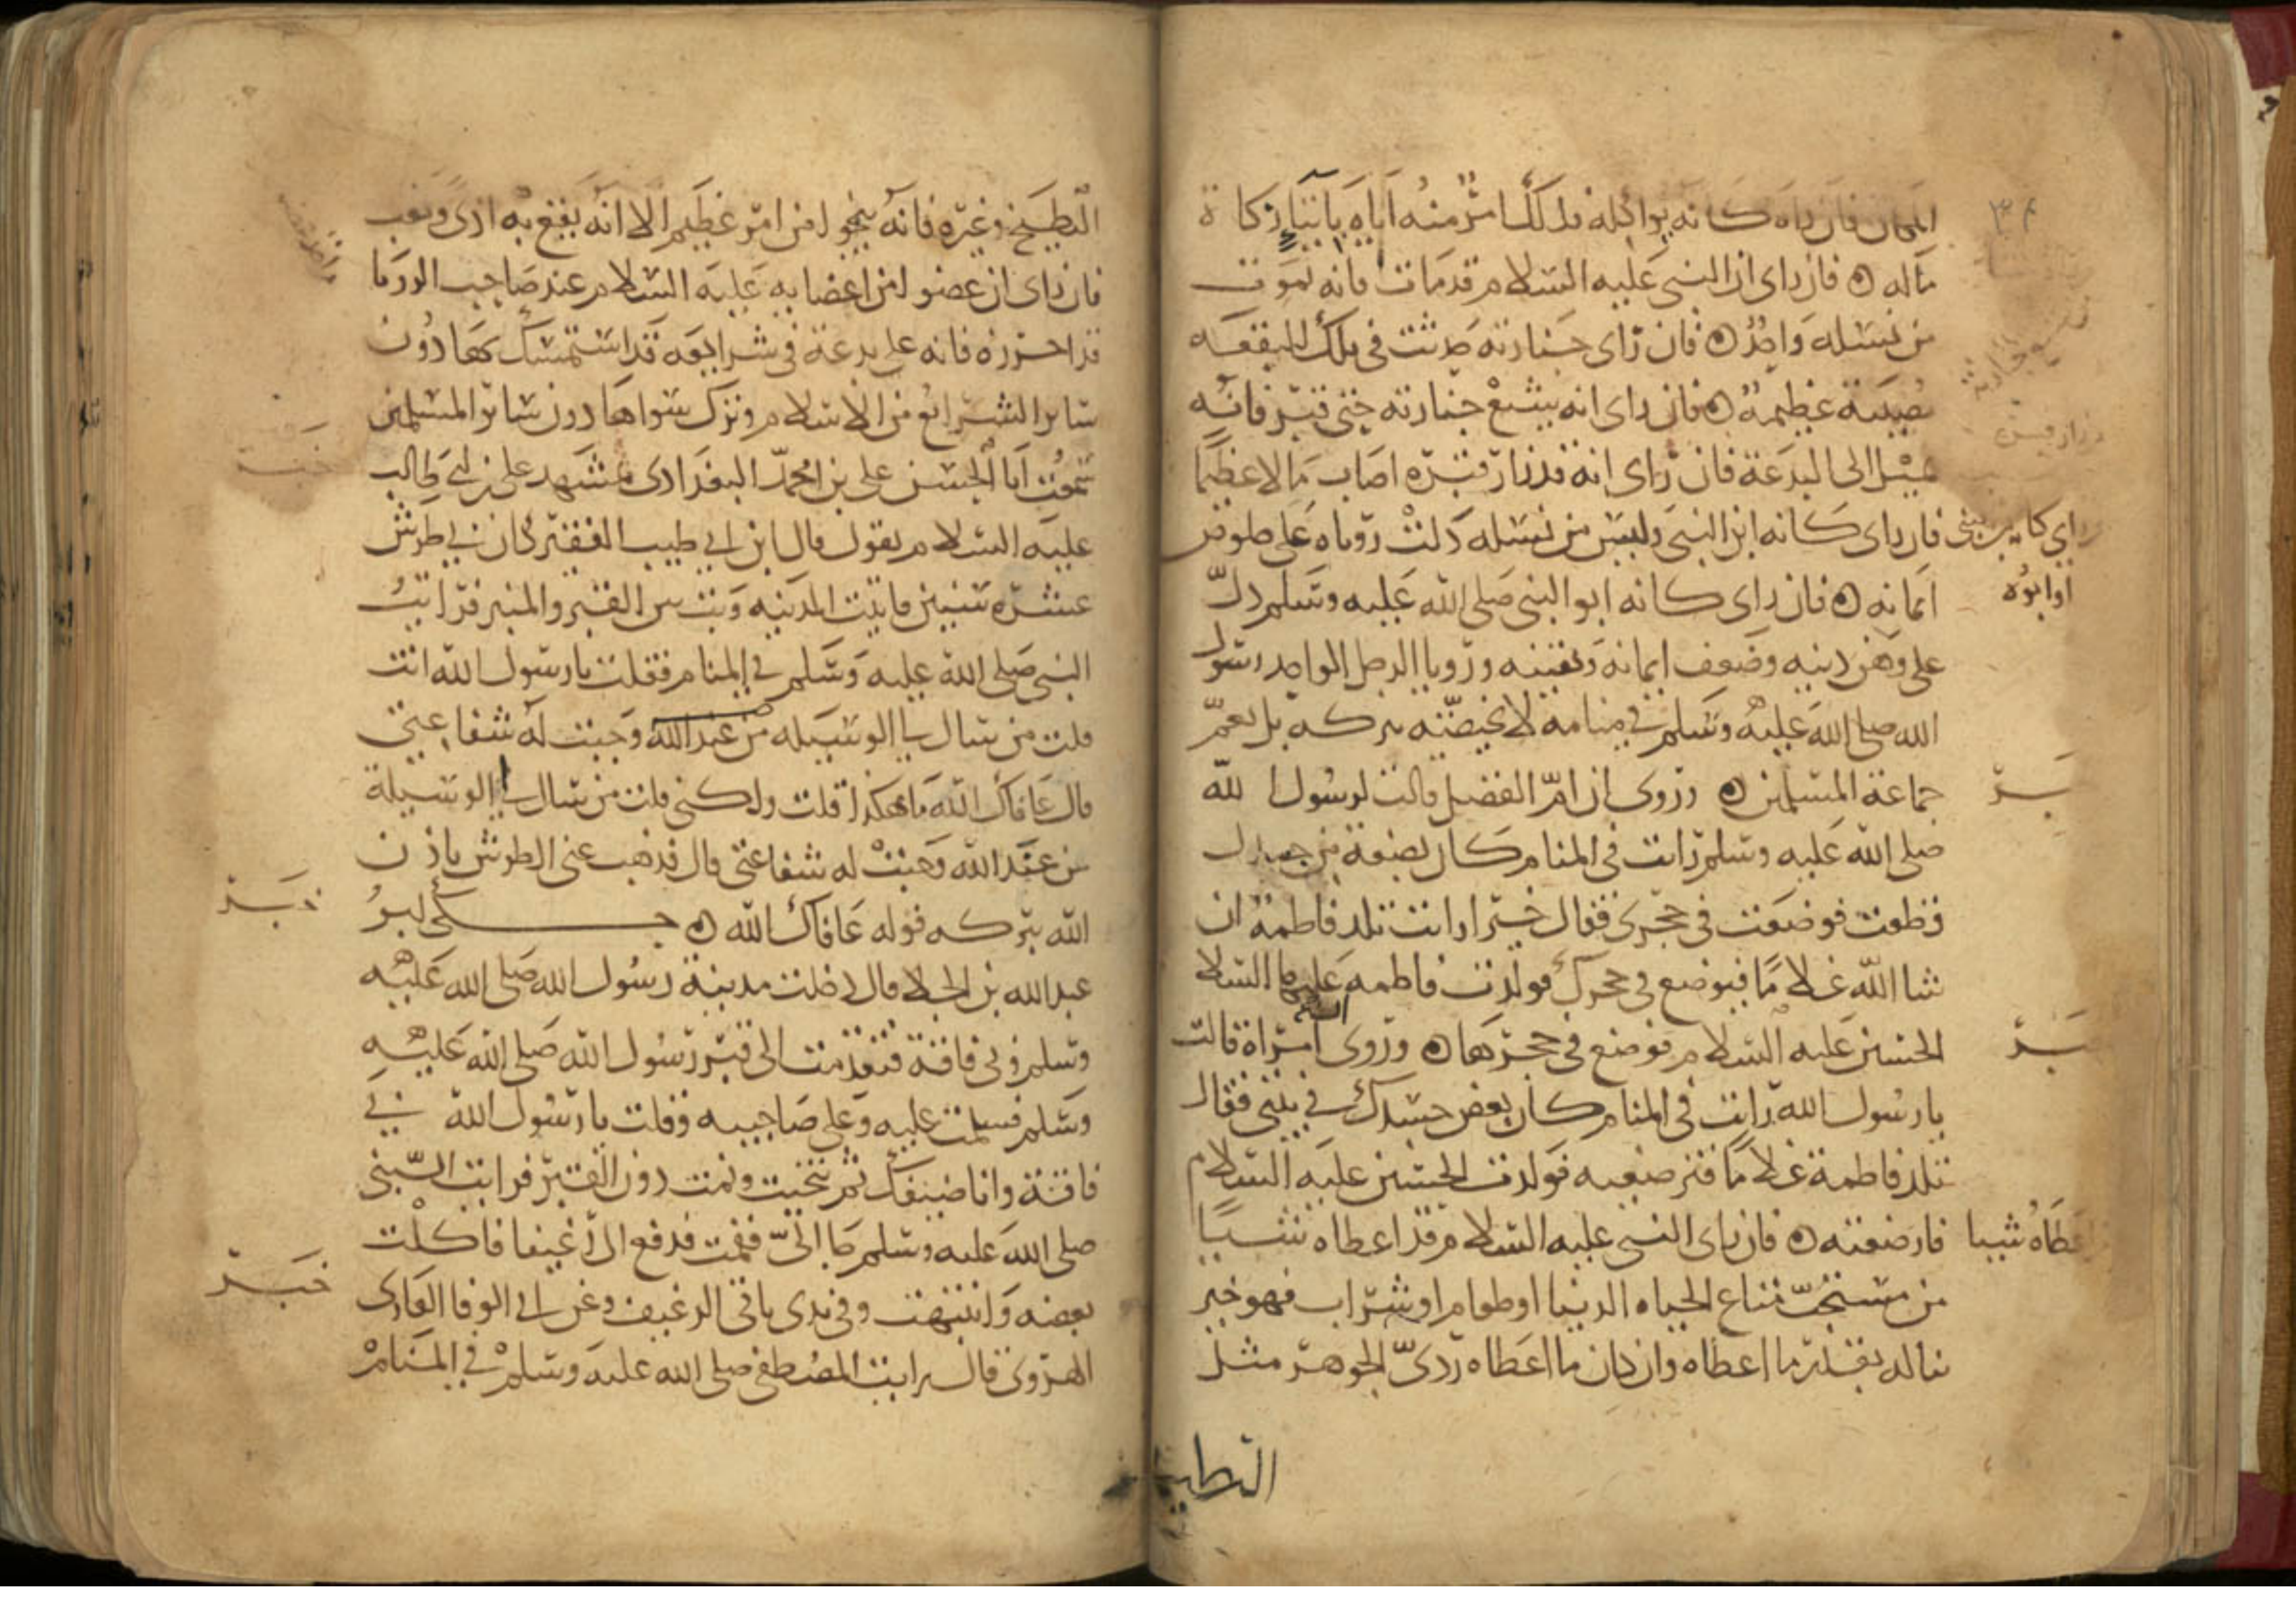 ٣٤
فان راه كانه يواكله فذلك امر منه اياه بايتاء زكاة
ماله ه فان راى ان النبى عليه السلام قد مات فانه يموت
من نسله واحد ه فان راى جنازته فى تلك البقعه
مصيبة عظيمة ه فان راى انه يشيع جنازته حتى قبر فانه
يميل الى البدعة فان راى انه قد زار قبره اصاب مالا عظيما
فان راى كانه ابن النبى وليس من نسله دلت روياه على خلوص
ايمانه ه فان راى كانه ابو النبى صلى الله عليه وسلم دل
اوابوه
على وهن دينه وضعف ايمانه ويقينه ورويا الرجل الواحد رسول
الله صلى الله عليه وسلم فى منامه لا تخصه بركه بل تعم
جماعة المسلمين ه وروى ان ام الفضل قالت لرسول الله
صلى الله عليه وسلم رايت فى المنام كان بضعة من جسدك
قطعت فوضعت فى حجرى فقال خيرا رايت تلد فاطمة ان
شا الله غلاما فيوضع فى حجرك فولدت فاطمه عليها السلام
الحسين عليه السلام فوضع فى حجرها ه وروى ان امراة قالت
يا رسول الله رايت فى المنام كان بعض جسدك فى بيتى فقال
تلد فاطمة غلاما فترضعيه فولدت الحسين عليه السلام
فارضعته ه فان راى النبى عليه السلام قد اعطاه شيبا
اعطاه شيبا
من مستحب متاع الحياه الدنيا او طعام او شراب فهو خير
يناله بقدر ما اعطاه وان كان ما اعطاه ردى الجوهر مثل
البطيخ
البطيخ وغيره فانه ينجو من امر عظيم الا انه يقع به اذى وتعب
فان راى ان عضوا من اعضايه عليه السلام عند صاحب الرويا
قد احرزه فانه على بدعة فى شرايعه قد استمسك بها دون
ساير الشرايع من الاسلام وترك سواها دون ساير المسلمين
سمعت ابا الحسن على بن محمد البغدادى بمشهد على بن ابى طالب
عليه السلام يقول قال ابن ابى طيب الفقير كان بى طرش
عشره سنين فاتيت المدينه وبت بين القبر والمنبر فرايت
النبى صلى الله عليه وسلم فى المنام فقلت يا رسول الله انت
قلت من سال لى الوسيله من عند الله وجبت له شفاعتى
قال عافاك الله ما هكذا قلت ولكنى قلت من سال لى الوسيلة
من عند الله وجبت له شفاعتى قال فذهب عنى الطرش باذن
الله ببركه قوله عافاك الله ه حكى لى
خبر
عبد الله بن الجلا قال دخلت مدينة رسول الله صلى الله عليه
وسلم وبى فاقة فتقدمت الى قبر رسول الله صلى الله عليه
وسلم فسلمت عليه وعلى صاحبيه وقلت يا رسول الله بى
فاقة وانا ضيفك ثم تنحيت ونمت دون القبر فرايت النبى
صلى الله عليه وسلم جا الى فقمت فدفع الى رغيفا فاكلت
خبر
بعضه وانتبهت وفى يدى باقى الرغيف وعن ابى الوفا القارى
الهروى قال رايت المصطفى صلى الله عليه وسلم فى المنام